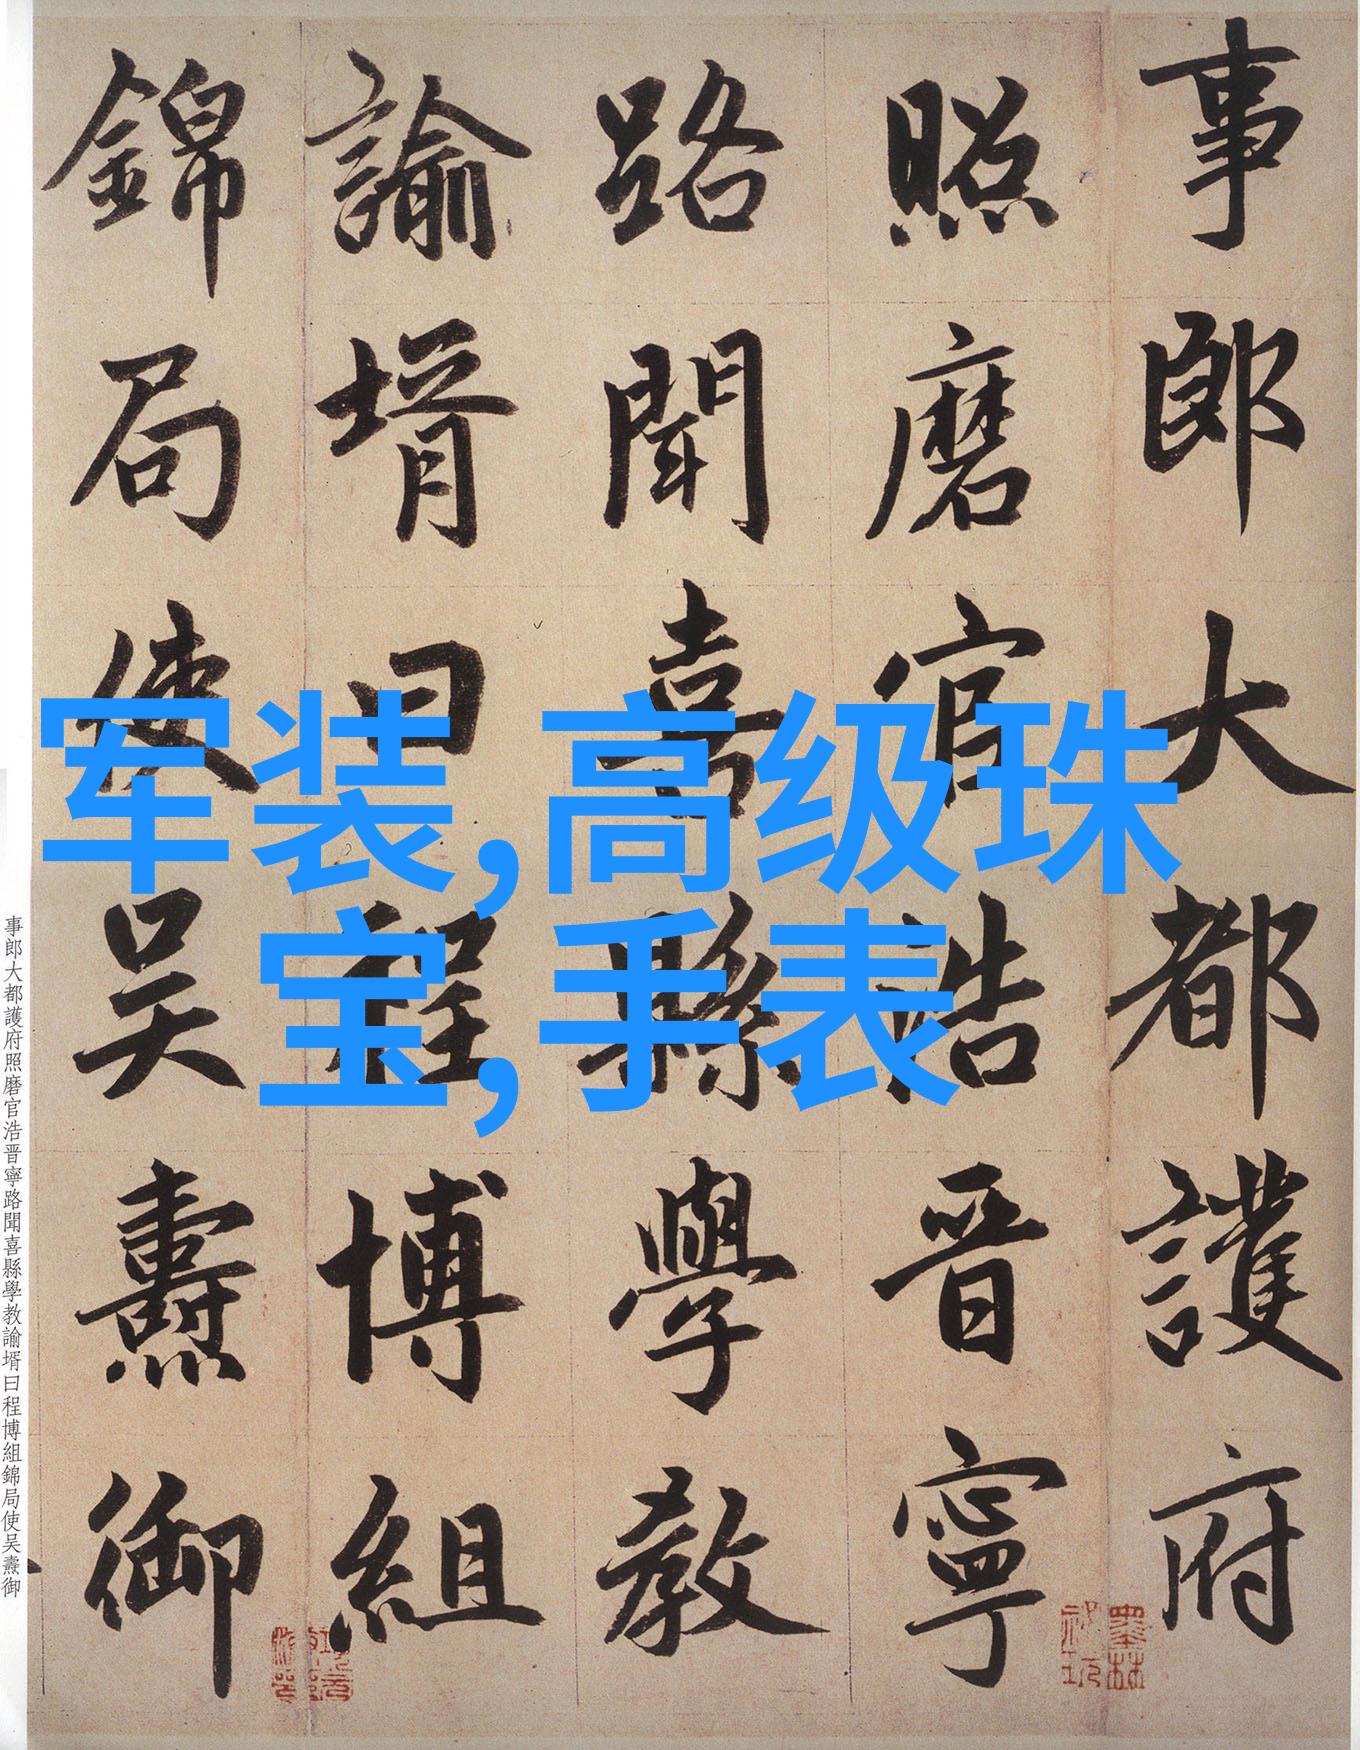 事郎大都護府
照磨官浩晋寧
路聞喜縣學教
諭壻曰程博組
錦局使吴燾御
军装,高级珠
宝,手表
事郎大都護府照磨官浩晋寧路聞喜縣學教諭壻曰程博組錦局使吴燾御